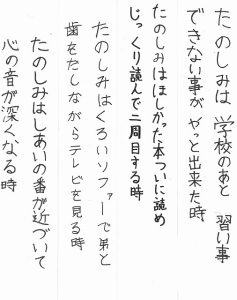 たのしみは 学校のあと 習い事
できない事が やっと出来た時
たのしみはほしかった本ついに読め
じっくり読んで二周目する時
たのしみはくろいソファーで弟と
歯をたしながらテレビを見る時
たのしみはしあいの番が近づいて
心の音が深くなる時